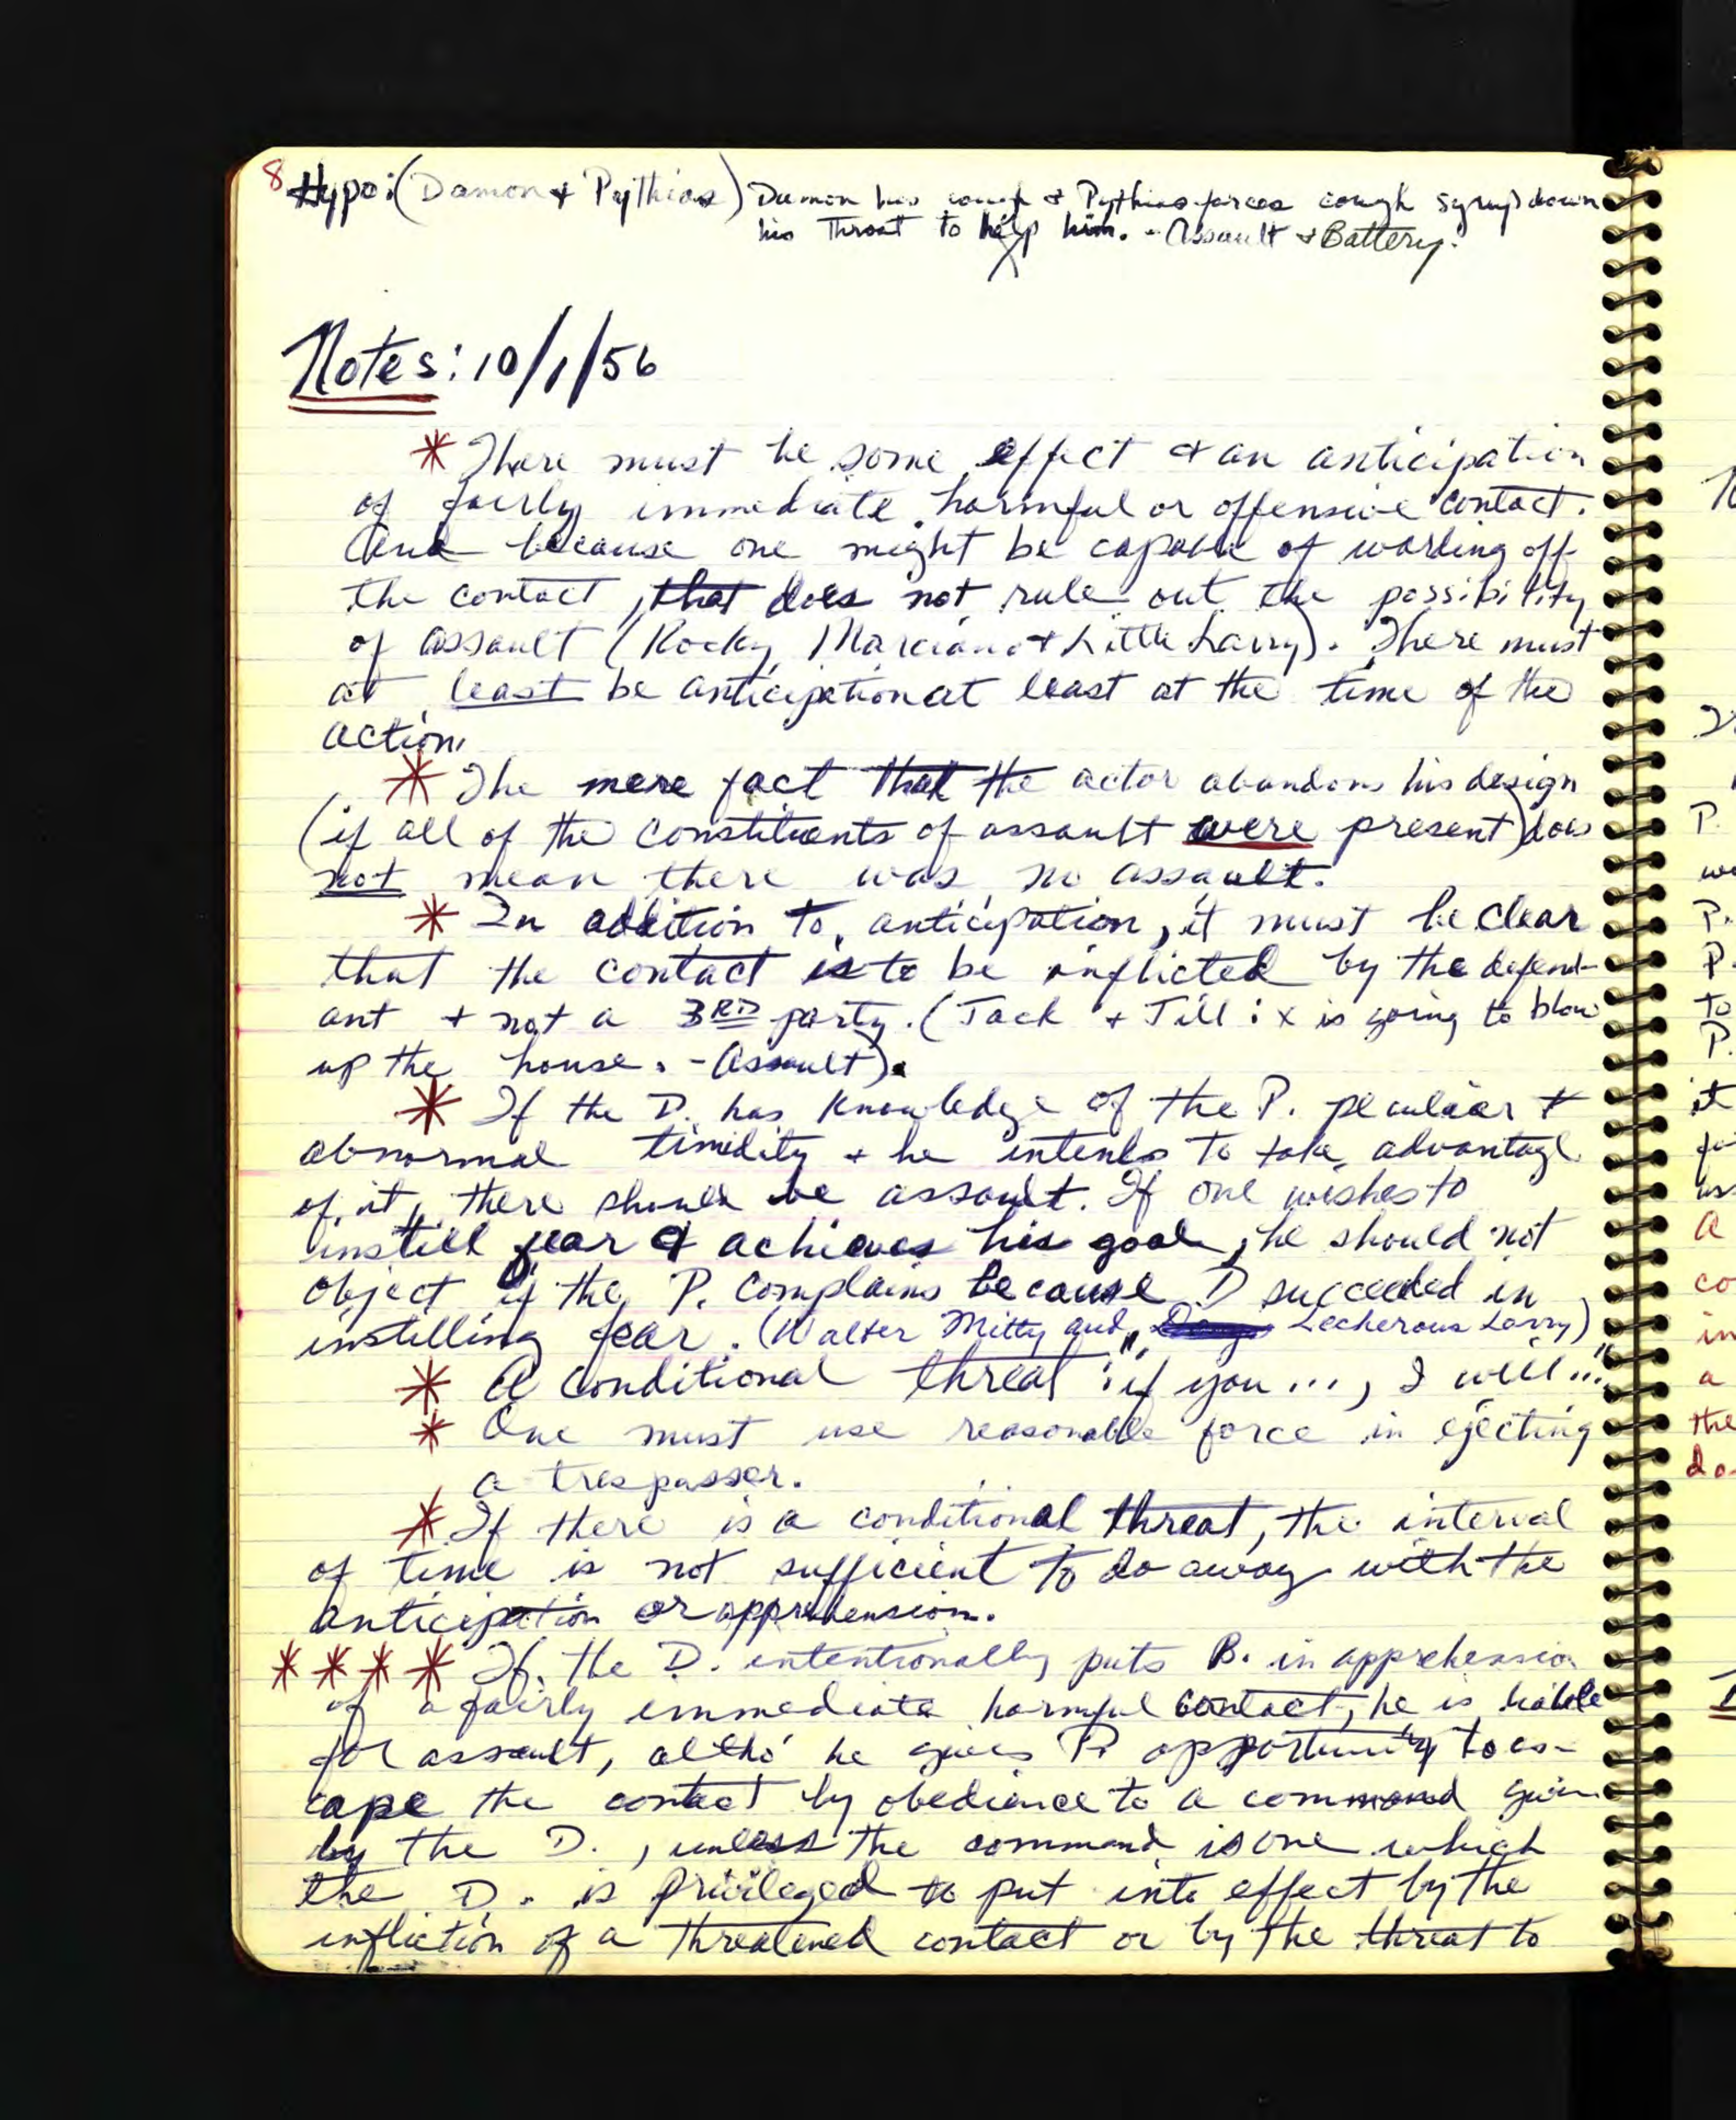 8 Hypo: (Damon & Pythias) Damon has cough & Pythias forces cough syrup down
his throat to help him. - Assault & Battery.
Notes: 10/1/56
* There must be some effect & an anticipation
of fairly immediate harmful or offensive contact.
And because one might be capable of warding off
the contact, that does not rule out the possibility
of assault (Rocky Marciano & Little Larry). There must
at least be anticipation at least at the time of the
action.
* The mere fact that the actor abandons his design
(if all of the constituents of assault were present) does
not mean there was no assault.
* In addition to anticipation, it must be clear
that the contact is to be inflicted by the defend-
ant & not a 3RD party. (Jack & Jill: x is going to blow
up the house. - Assault).
* If the D. has knowledge of the P. peculiar &
abnormal timidity & he intends to take advantage
of it, there should be assault. If one wishes to
instill fear & achieves his goal, he should not
object if the P. complains because D succeeded in
instilling fear. (Walter Mitty and Lecherous Larry)
* A conditional threat: "if you ..., I will..."
* One must use reasonable force in ejecting
a trespasser.
* If there is a conditional threat, the interval
of time is not sufficient to do away with the
anticipation or apprehension.
* * * * If the D. intentionally puts B. in apprehension
of a fairly immediate harmful contact, he is liable
for assault, altho' he gives P. opportunity to es-
cape the contact by obedience to a command given
by the D., unless the command is one which
the D. is privileged to put into effect by the
infliction of a threatened contact or by the threat to
P.
P.
P.
to
P.
it
A
co
in
a
the